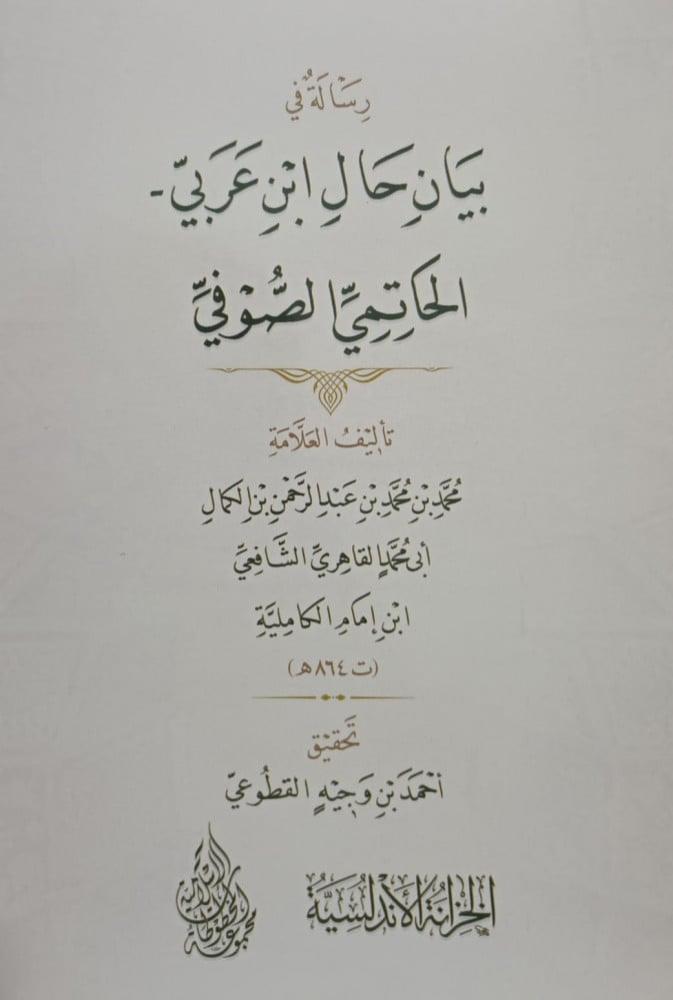 رِسَالَةٌ فِي
بَيَانِ حَالِ ابْنِ عَرَبِيّ -
الحَاتِمِيِّ الصُّوْفِيِّ
تَأْلِيْفُ العَلَّامَةِ
مُحَمَّدِ بْنِ مُحَمَّدِ بْنِ عَبْدِ الرَّحْمَنِ بْنِ الكَمَالِ
أَبِي مُحَمَّدٍ القَاهِرِيِّ الشَّافِعِيِّ
ابْنِ إِمَامِ الكَامِلِيَّةِ
(ت ٨٦٤هـ)
تَحْقِيْق
أَحْمَدَ بْنِ وَجِيْهٍ القطُوعِيّ
الخِزَانَةُ الأَنْدَلُسِيَّةُ
مجموعة المخطوطات الإسلامية